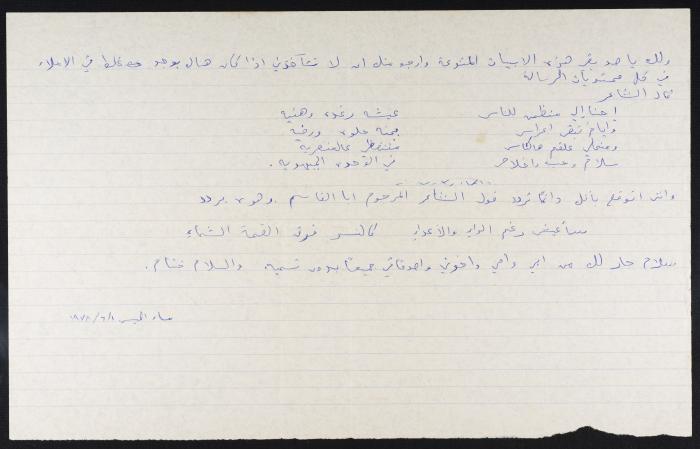 ولك يا صديقي هذه الابيات المتنوعة وارجو منك ان لا تؤاخذني اذا كان هناك يوجد غلط في الاملاء
في كل محتويات الرسالة
قال الشاعر
احنا اللي منظمن للناس عيشه رغده وهنيه
واياخ تبقر اعراس بجنه حلوه ورضية
ومنخلي علقم هالكاس
سلام وحب واخلاص في
وانني اتوقع بأنك دائما تردد قول الشاعر المرحوم ابا القاسم وهو يردد
سأعيش رغم الداء والأعداء كالنسر فوق القمة الشماء
سلام حار لك من ابي وامي واخوتي واصدقائي جميعا بدون تسمية. والسلام ختام.
مساء الخميس ١٩٧٨/٦/١